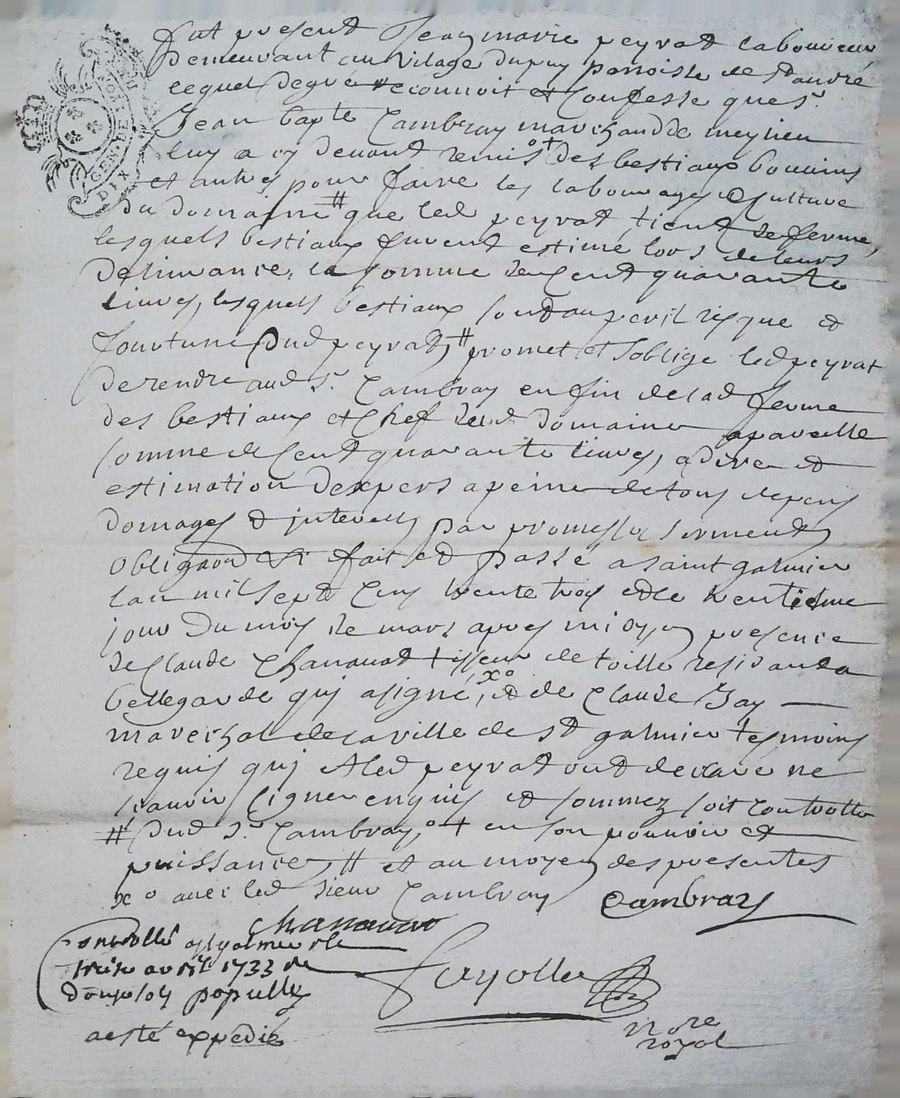 GEN. DE LYON
DIX
fut present Jean marie peyrat laboureur
demeurant au vilage dupuy parroisse de St andré
lequel degré reconnoit et confesse que sr
Jean bapte Cambray marchand de meyrieu
luy a cy devant remis o+ des bestiaux bouvins
et autres pour faire les labourages & culture
du domaine # que led peyrat tient de ferme,
lesquels bestiaux furent estimé lors de leurs
delivrance, la somme de Cent quarante
livres, lesquels bestiaux sont au peril risque et
fourtune dud peyrat, # promet et soblige led peyrat
de rendre aud sr. Cambray en fin de lad ferme
des bestiaux et chef dud domaine apareille
somme de Cent quarante livres, a dire et
estimation dexpers a peine de tous depens
domages & interests par promesses serments
obligaon &c fait et passé a saint galmier
lan mil sept Cens trente trois et le trentiesme
jour du mois de mars apres midy en presence
de Claude Chanavat tisseur de toille residant a
bellegarde quy a signé, xo et de Claude Jay
marechal de la ville de St galmier tesmoins
requis quj et led peyrat ont declaré ne
scavoir signer enquis et sommez soit controllé
# dud sr. Cambray, o+ en son pouvoir et
puissance, # et au moyen des presentes
xo avec led sieur Cambray
Cambray
Chanavat
Controllé a St galmier le
treise avril 1733 Re
douze sols popully
a esté expedié
fayolle
nore
royal